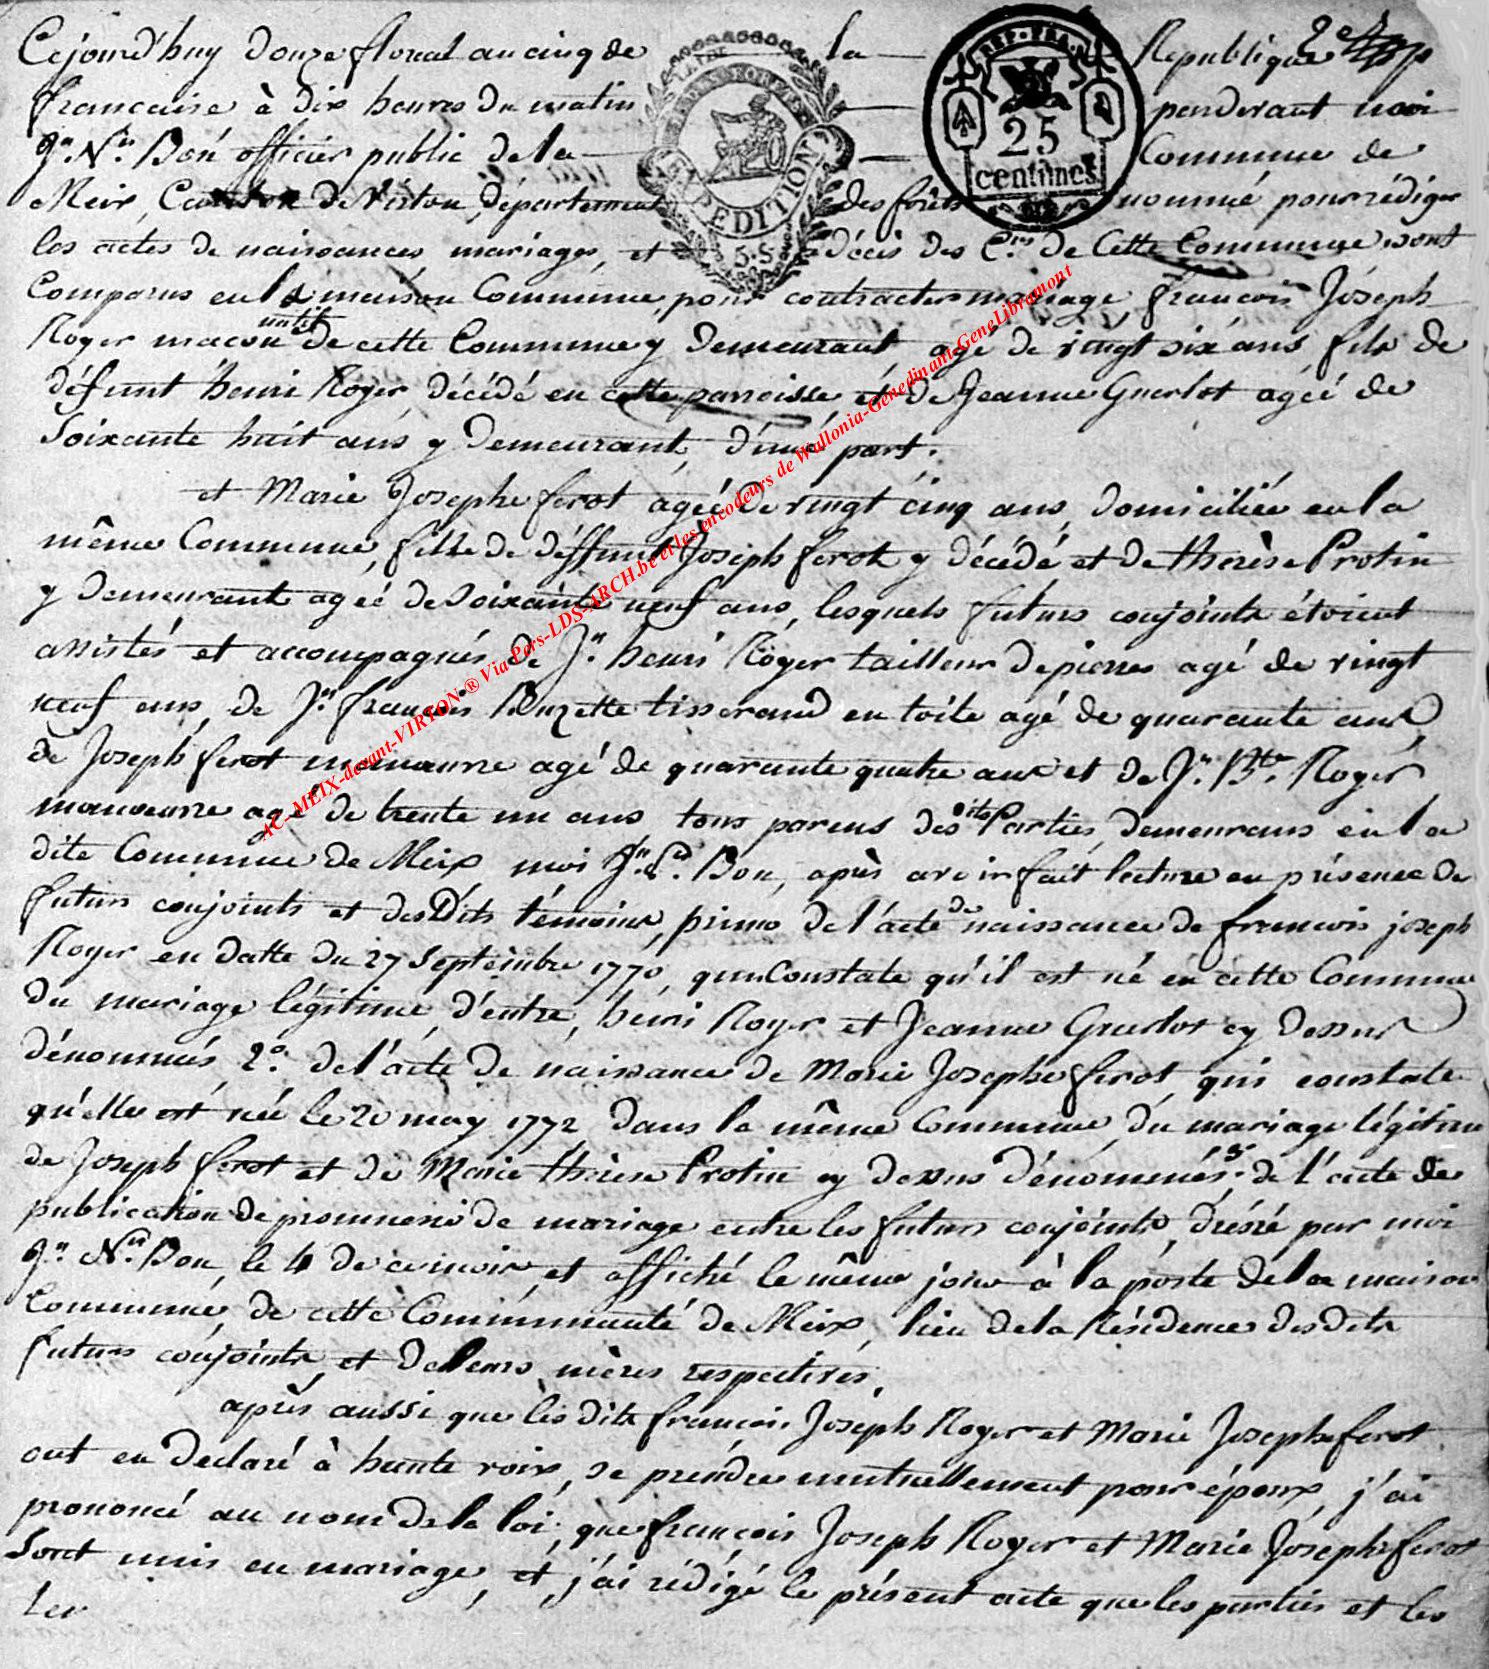 Cejourd'huy douze floreal an cinq de la République 2e
francaise à dix heures du matin pardevant moi
Jn. Ns. Bon officier public de la Commune de
Meix, Canton de Virton, département des forêts nommé pour rédiger
les actes de naissances, mariages, et décès des C.ns de Cette Commune sont
Comparus en la maison Commune, pour contracter mariage, françois Joseph
Roger macon natif de cette Commune y demeurant, agé de vingt six ans, fils de
défunt henri Roger, décédé en cette parroisse, et de Jeanne Guerlot agée de
soixante huit ans y demeurant, d'une part.
et Marie Josephe ferot agée de vingt cinq ans, domiciliée en la
même Commune, fille de déffunt Joseph ferot y décédé et de therèse Protin
y demeurant agée de soixante neuf ans, lesquels futurs conjoints étoient
assistés et accompagnés de Jn. henri Roger tailleur de pierres agé de vingt
neuf ans, de Jn. françois Rouzette tisserand en toile agé de quarante ans,
de Joseph ferot manœuvre agé de quarante quatre ans et de Jn. Bte. Roger
manœuvre agé de trente un ans tous parens desdites Parties, demeurans en la
dite Commune de Meix moi Jn. Bon, après avoir fait lecture en présence de
futurs conjoints et desdits témoins, primo de l'acte de naissance de francois joseph
Roger en datte du 27 Septembre 1770, qui Constate qu'il est né en cette Commune
du mariage légitime d'entre, henri Roger et Jeanne Guerlot cy dessus
dénommés, 2°. de l'acte de naissance de Marie Josephe ferot qui constate
qu'elle est née le 20 may 1772 dans la même Commune, du mariage légitime
de Joseph ferot et de Marie therèse Protin cy dessus dénommés, 3°. de l'acte de
publication de promesse de mariage entre les futurs conjoints, dréssé par moi
Jn. Ns. Bon, le 4 de ce mois et affiché le même jour à la porte de la maison
Commune, de cette Communauté de Meix, lieu de la Résidence desdits
futurs conjoints, et de leurs mères respectives,
après aussi que lesdits francois Joseph Roger et Marie Josephe ferot
ont eu déclaré à haute voix, se prendre mutuellement pour époux, j'ai
prononcé au nom de la loi, que françois Joseph Roger et Marie Josephe ferot
sont unis en mariage, et j'ai rédigé le présent acte que les parties et les
REP. FRA.
25
centimes
EXPEDITION
3. S
AC-MEIX-devant-VIRTON ® Via Pers-LDS-ARCH.be et les encodeurs de Wallonia-Genedinant-GeneLibramont